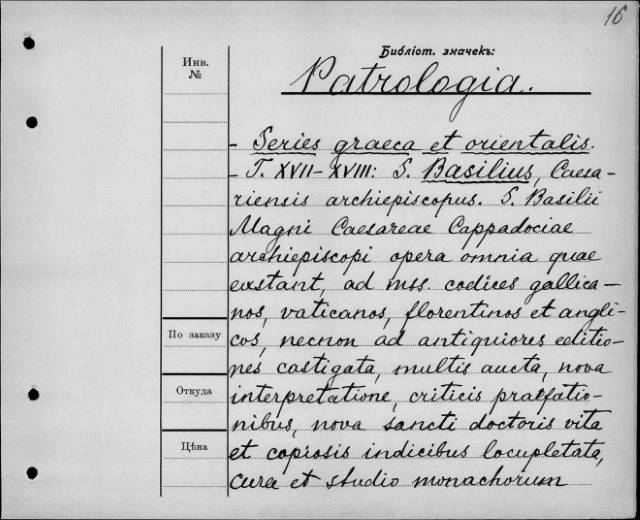 16
Библіот. значекъ:
Инв.
№
Patrologia.
- Series graeca et orientalis.
- T. XVII–XVIII: S. Basilius, Caesa-
riensis archiepiscopus. S. Basilii
Magni Caesareae Cappadociae
archiepiscopi opera omnia quae
exstant, ad mss. codices gallica-
nos, vaticanos, florentinos et angli-
cos, necnon ad antiquiores editio-
nes castigata, multis aucta, nova
interpretatione, criticis praefatio-
nibus, nova sancti doctoris vita
et copiosis indicibus locupletata,
cura et studio monachorum
По заказу
Откуда
Цѣна